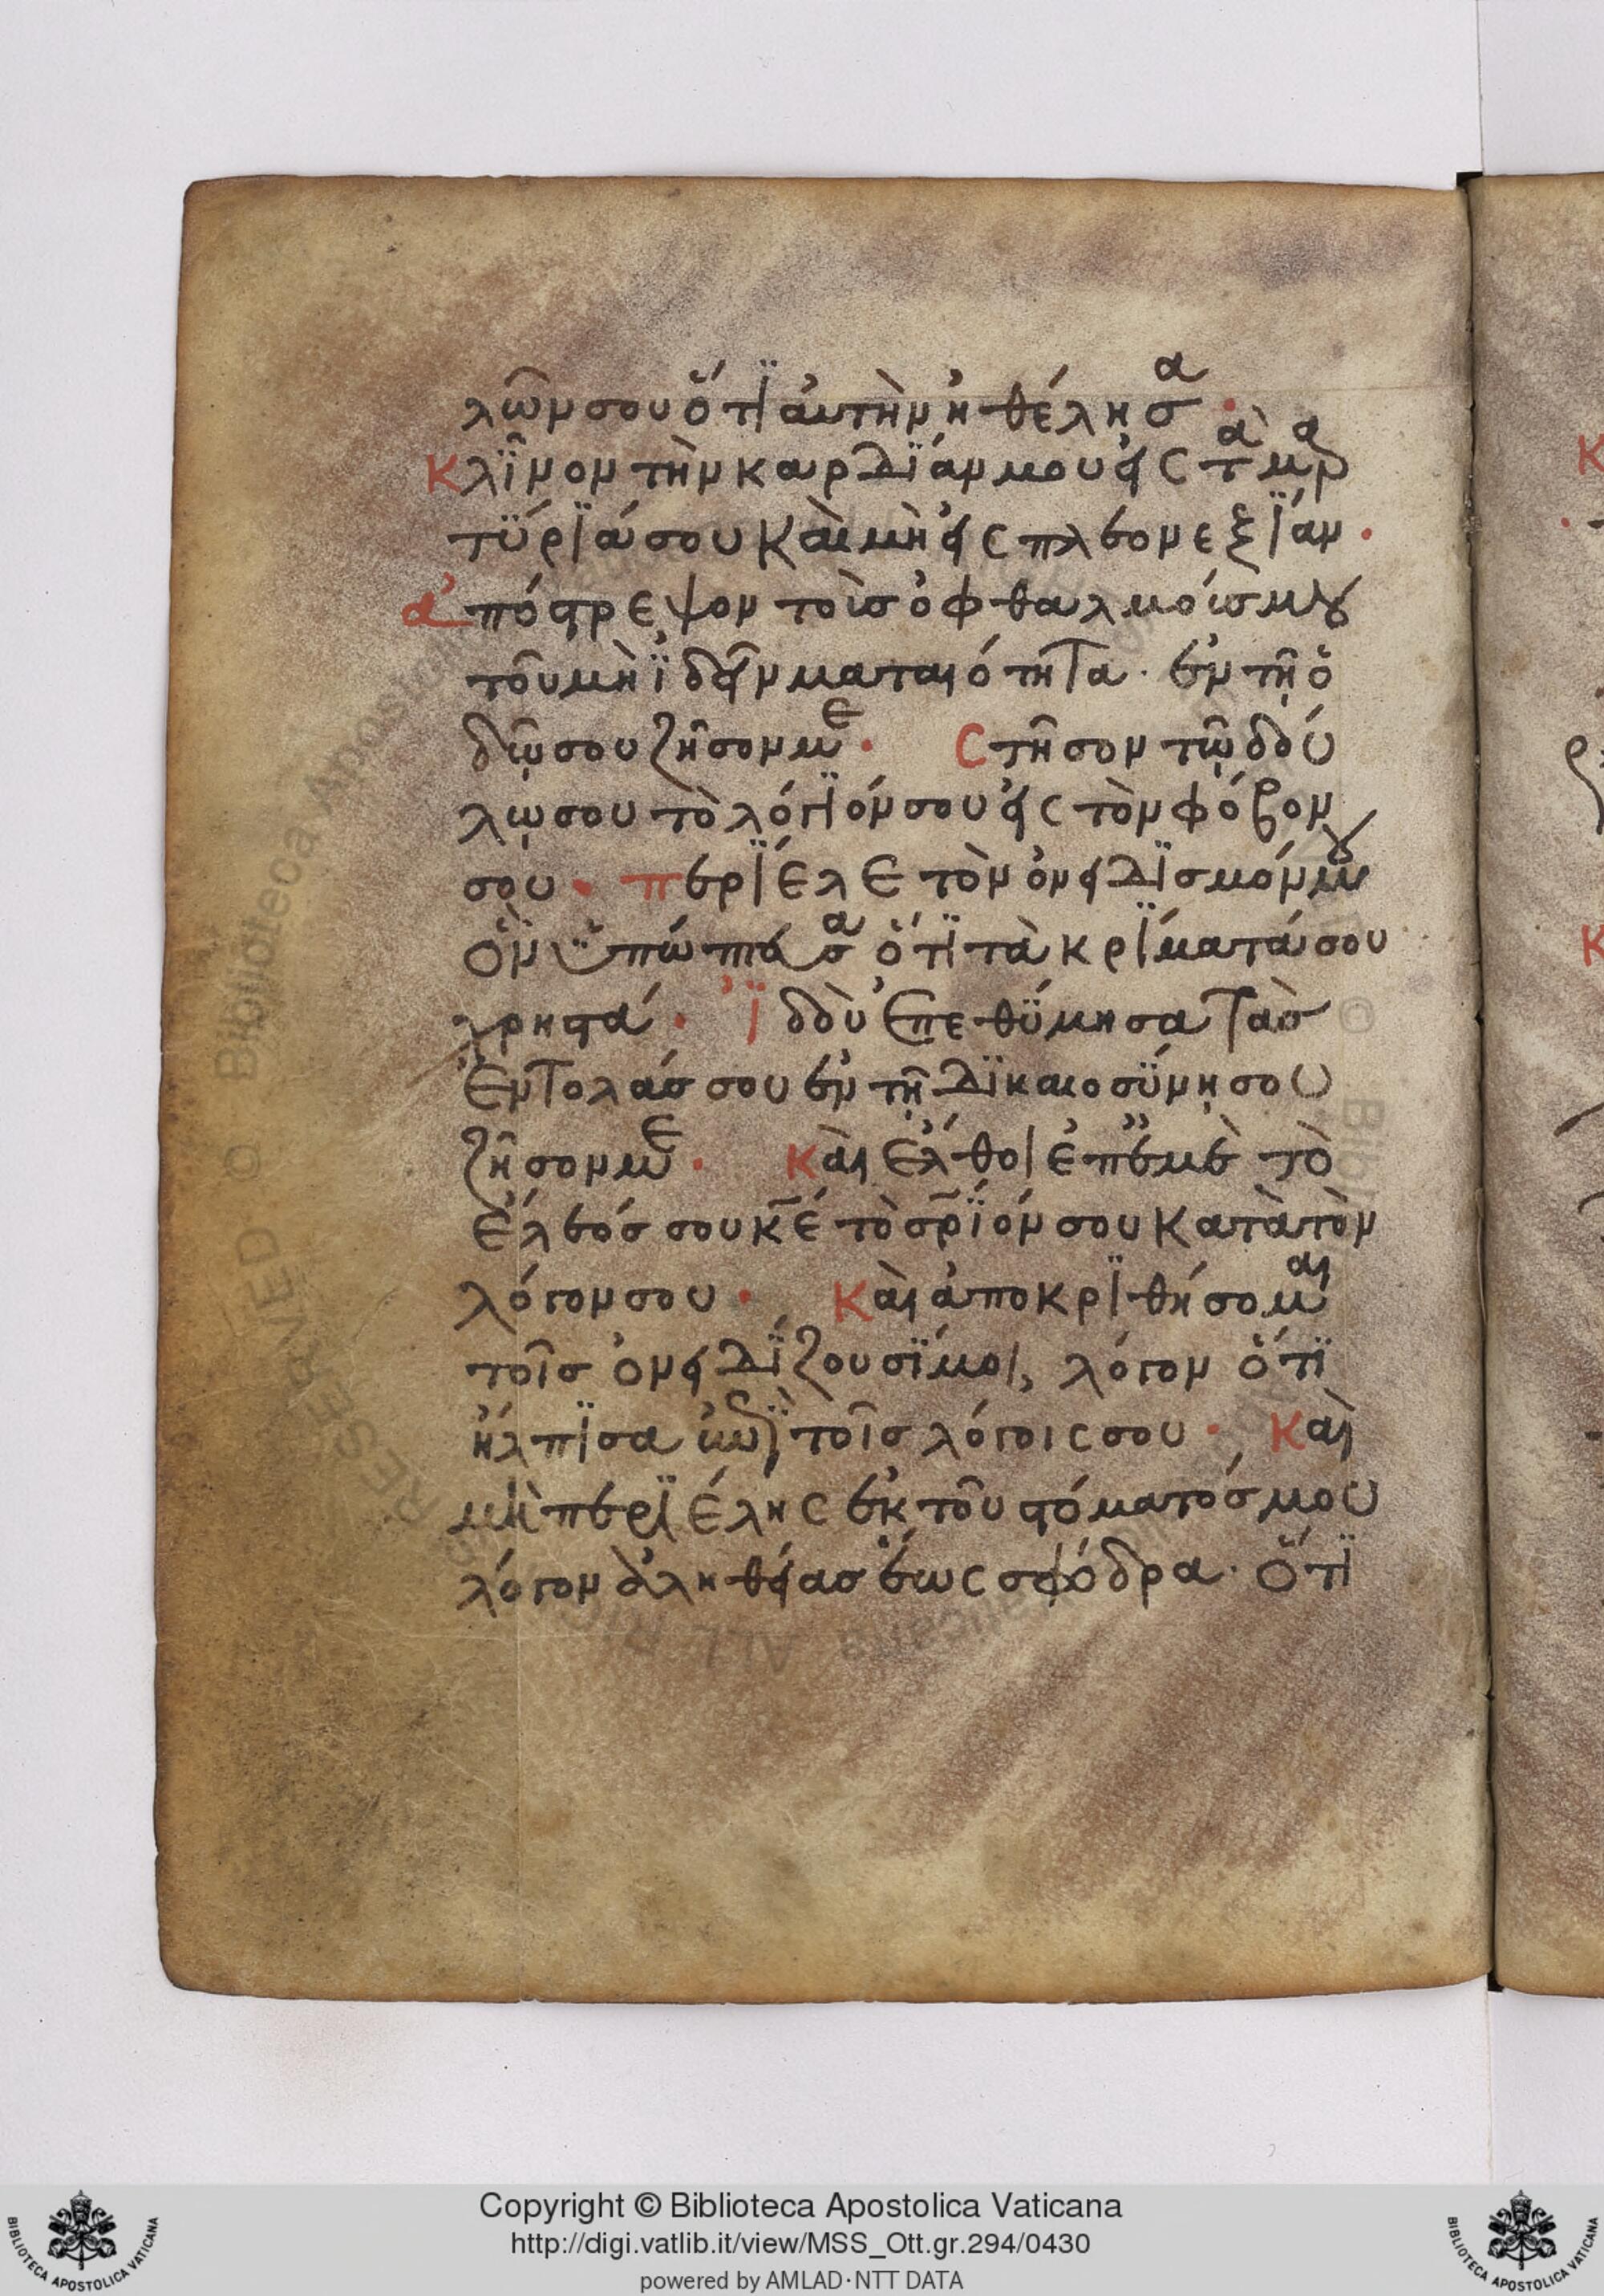 λῶν σου ὅτϊ ἀυτὴν ἠθέλησα·
Κλῖνον τὴν καρδΐαν μου εἰς τὰ μαρ
τΰρϊά σου καὶ μὴ εἰς πλεονεξΐαν·
ἀπόστρεψον τοὶς ὀφθαλμοίς μου
τοῦ μὴ ϊδεῖν ματαιότητα· ἐν τῆ ὁ
δῶ σου ζῆσον με· Στῆσον τῶ δού
λω σου τὸ λόγϊόν σου εἰς τὸν φόβον
σου· περϊέλε τὸν ὀνειδϊσμόν μου
ὃν ϋπώπτευσα ὅτϊ τὰ κρΐματά σου
χρηστά· ϊδοὺ ἐπεθΰμησα τὰς
ἐντολάς σου ἐν τῆ δϊκαιοσΰνη σου
ζῆσον με· Καὶ ἔλθοι ἐπ' ἐμὲ τὸ
ἔλεός σου κε τὸ σρΐόν σου κατὰ τὸν
λόγον σου· Καὶ ἀποκρϊθήσομαι
τοῖς ὀνειδΐζουσΐ μοι, λόγον ὅτϊ
ἤλπϊσα ἐπὶ τοῖς λόγοις σου· Καὶ
μὴ περϊέλης ἐκ τοῦ στόματός μου
λόγον ἀληθείας ἕως σφόδρα· ὅτϊ
Copyright © Biblioteca Apostolica Vaticana
http://digi.vatlib.it/view/MSS_Ott.gr.294/0430
powered by AMLAD·NTT DATA
BIBLIOTECA APOSTOLICA VATICANA
BIBLIOTECA APOSTOLICA VATICANA